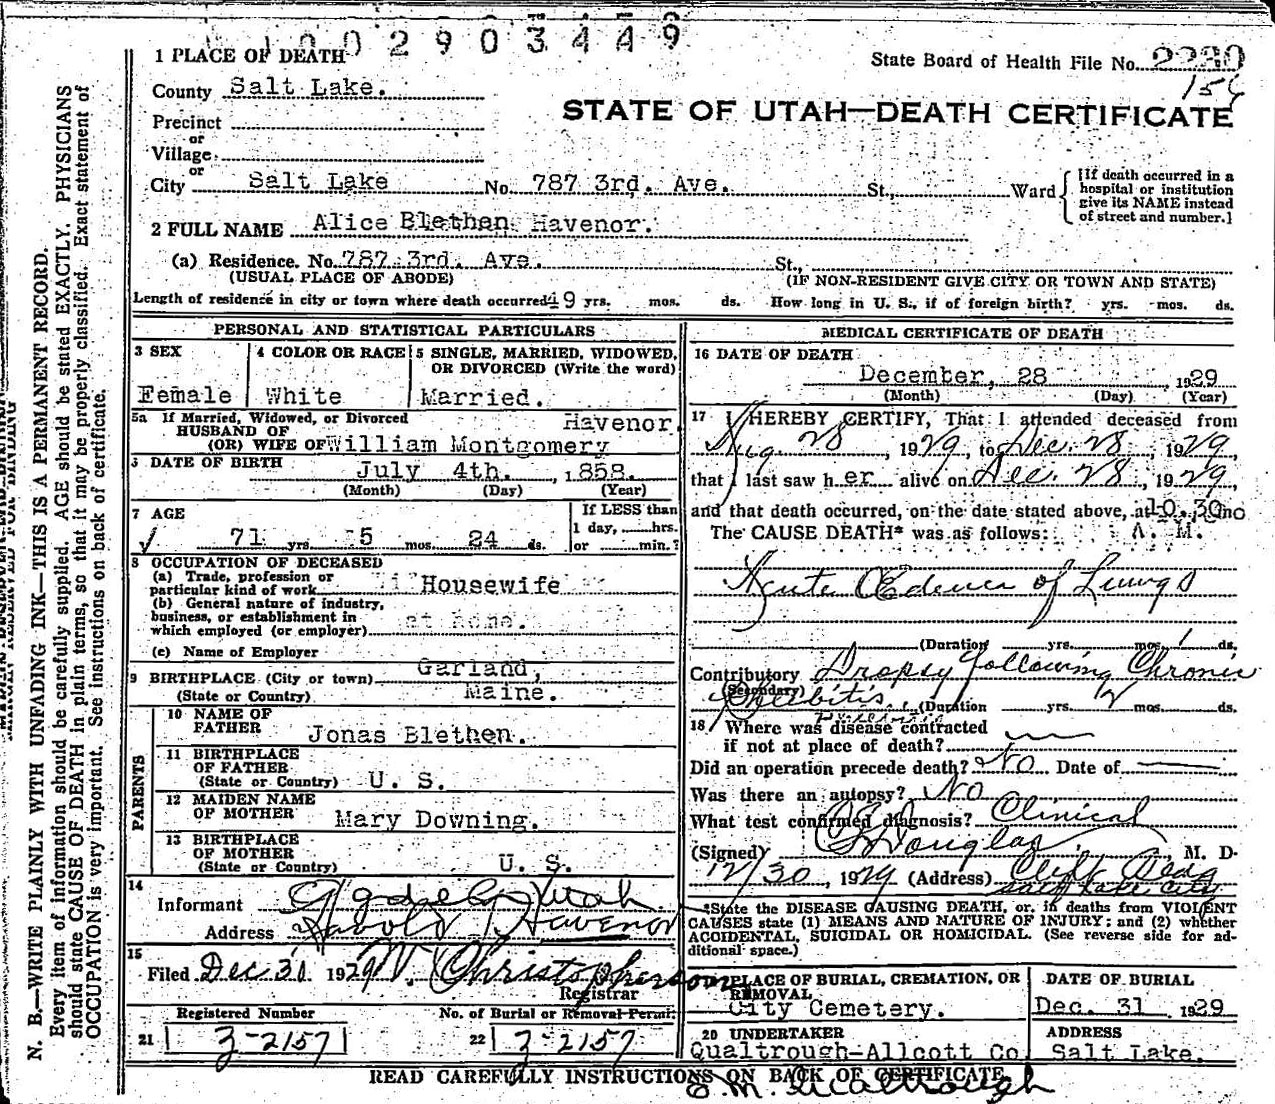 1002903449
1 PLACE OF DEATH
State Board of Health File No. 2230
156
County Salt Lake.
STATE OF UTAH—DEATH CERTIFICATE
Precinct
or
Village
or
City Salt Lake No. 787 3rd. Ave. St., Ward
[If death occurred in a
hospital or institution
give its NAME instead
of street and number.]
2 FULL NAME Alice Blethen Havenor.
(a) Residence. No. 787 3rd. Ave. St.,
(USUAL PLACE OF ABODE) (IF NON-RESIDENT GIVE CITY OR TOWN AND STATE)
Length of residence in city or town where death occurred 49 yrs. mos. ds. How long in U. S., if of foreign birth? yrs. mos. ds.
PERSONAL AND STATISTICAL PARTICULARS
3 SEX
Female
4 COLOR OR RACE
White
5 SINGLE, MARRIED, WIDOWED,
OR DIVORCED (Write the word)
Married.
5a If Married, Widowed, or Divorced Havenor.
HUSBAND OF
(OR) WIFE OF William Montgomery
6 DATE OF BIRTH
July 4th. , 1858.
(Month) (Day) (Year)
7 AGE
71 yrs. 5 mos. 24 ds.
If LESS than
1 day, hrs.
or min.?
8 OCCUPATION OF DECEASED
(a) Trade, profession or
particular kind of work Housewife
(b) General nature of industry,
business, or establishment in
which employed (or employer) at Home.
(c) Name of Employer
9 BIRTHPLACE (City or town) Garland,
(State or Country) Maine.
PARENTS
10 NAME OF
FATHER Jonas Blethen.
11 BIRTHPLACE
OF FATHER
(State or Country) U. S.
12 MAIDEN NAME
OF MOTHER Mary Downing.
13 BIRTHPLACE
OF MOTHER
(State or Country) U. S.
14
Informant Utah
Address Harold Havenor
15
Filed Dec 31 1929 W. Christopherson
Registrar
Registered Number
21 3-2157
No. of Burial or Removal Permit
22 3-2157
MEDICAL CERTIFICATE OF DEATH
16 DATE OF DEATH
December, 28 , 1929
(Month) (Day) (Year)
17 I HEREBY CERTIFY, That I attended deceased from
Aug. 28 , 1929, to Dec. 28 , 1929
that I last saw her alive on Dec. 28 , 1929,
and that death occurred, on the date stated above, at 10.30
The CAUSE DEATH* was as follows: A. M.
Acute Œdema of Lungs
(Duration yrs. mos. 1 ds.
Contributory Dropsy following Chronic
(Secondary)
(Duration yrs. mos. ds.
18 Where was disease contracted
if not at place of death?
Did an operation precede death? No Date of
Was there an autopsy? No
What test confirmed diagnosis? Clinical
(Signed) Douglas M. D.
12/30 , 1929 (Address) Clift Bldg
Salt Lake City
*State the DISEASE CAUSING DEATH, or, in deaths from VIOLENT
CAUSES state (1) MEANS AND NATURE OF INJURY; and (2) whether
ACCIDENTAL, SUICIDAL OR HOMICIDAL. (See reverse side for ad-
ditional space.)
PLACE OF BURIAL, CREMATION, OR
REMOVAL
City Cemetery.
DATE OF BURIAL
Dec. 31 1929
20 UNDERTAKER
Qualtrough-Allcott Co.
ADDRESS
Salt Lake.
READ CAREFULLY INSTRUCTIONS ON BACK OF CERTIFICATE
E. M. Qualtrough
N. B.—WRITE PLAINLY WITH UNFADING INK—THIS IS A PERMANENT RECORD.
Every item of information should be carefully supplied. AGE should be stated EXACTLY. PHYSICIANS
should state CAUSE OF DEATH in plain terms, so that it may be properly classified. Exact statement of
OCCUPATION is very important. See instructions on back of certificate.